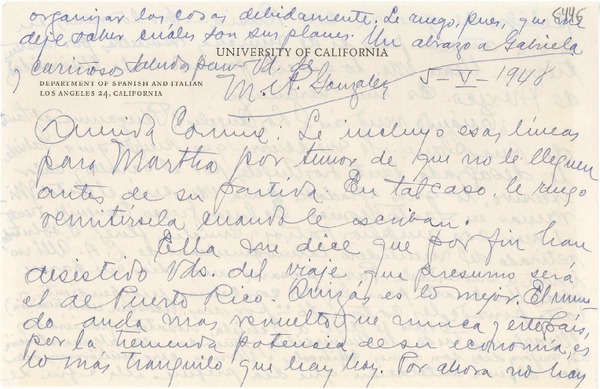 organizar las cosas debidamente. Le ruego, pues, que me
deje saber cuales son sus planes. Un abrazo a Gabriela
y cariñosos saludos para Vd. de
M. P. Gonzalez
UNIVERSITY OF CALIFORNIA
DEPARTMENT OF SPANISH AND ITALIAN
LOS ANGELES 24, CALIFORNIA
5-V-1948
Querida Connie: Le incluyo esas líneas
para Martha por temor de que no le lleguen
antes de su partida. En tal caso, le ruego
remitírsela cuando le escriban.
Ella me dice que por fin han
desistido Vds. del viaje que presumo será
el de Puerto Rico. Quizás es lo mejor. El mun
do anda más revuelto que nunca y este país,
por la tremenda potencia de su economía, es
lo más tranquilo que hay hoy. Por ahora no hay